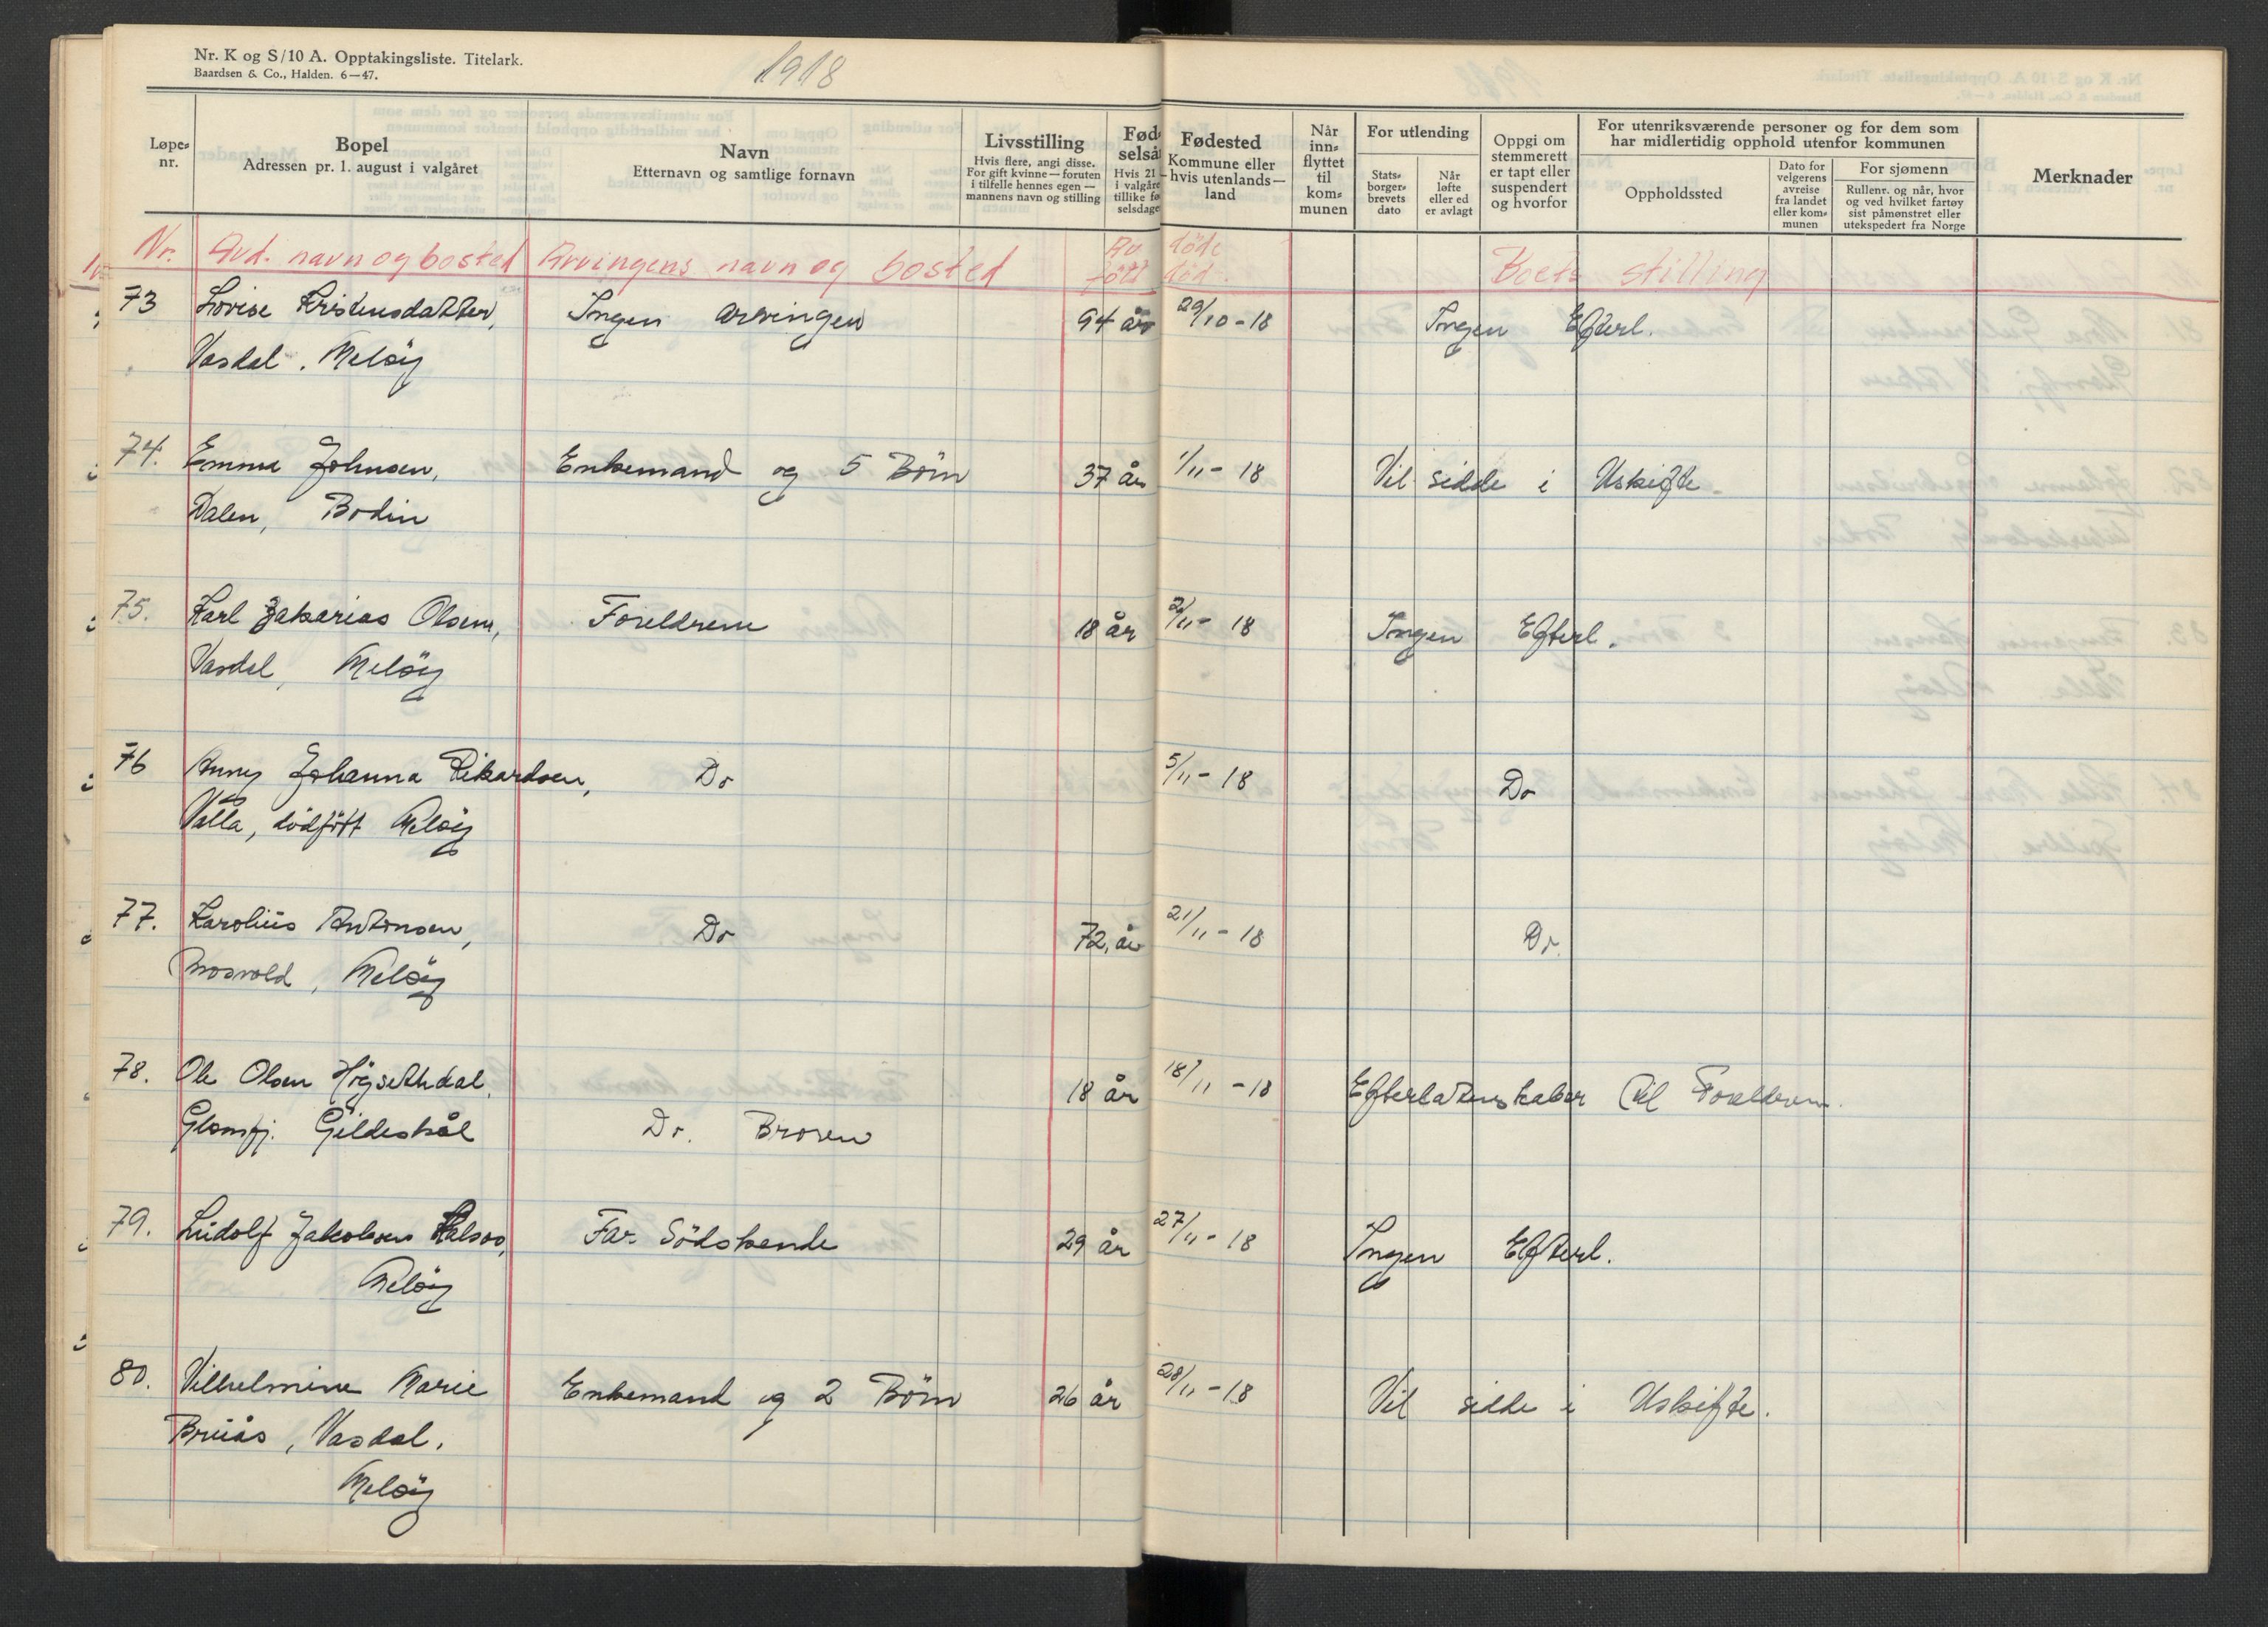 Nr. K og S/10 A. Opptakingsliste. Titelark.
Baardsen & Co., Halden. 6—47.
1918
Løpe-
nr.
Bopel
Adressen pr. 1. august i valgåret
Navn
Etternavn og samtlige fornavn
Livsstilling
Hvis flere, angi disse.
For gift kvinne — foruten
i tilfelle hennes egen —
mannens navn og stilling
Fød-
selsår
Hvis 21
i valgåre
tillike fø
selsdage
Fødested
Kommune eller
— hvis utenlands —
land
Når
inn-
flyttet
til
kom-
munen
For utlending
Stats-
borger-
brevets
dato
Når
løfte
eller ed
er avlagt
Oppgi om
stemmerett
er tapt eller
suspendert
og hvorfor
For utenriksværende personer og for dem som
har midlertidig opphold utenfor kommunen
Oppholdssted
Dato for
velgerens
avreise
fra landet
eller kom-
munen
For sjømenn
Rullenr. og når, hvor
og ved hvilket fartøy
sist påmønstret eller
utekspedert fra Norge
Merknader
Nr. Avd. navn og bosted Arvingens navn og bosted Av døde Boets stilling
født død.
73 Lovise Kristensdatter, Ingen arvingen 94 år 29/10 - 18 Ingen Efterl.
Vasdal. Meløy
74. Emma Johnsen, Enkemand og 5 Börn 37 år 1/11 - 18 Vil sidde i Uskifte
Dalen, Bodin
75. Karl Zakarias Olsen, Foreldrene 18 år 2/11 - 18 Ingen Efterl.
Vasdal, Melöy
76 Anny Johanna Rikardsen, Do 5/11 - 18 Do
Valla, dödfött Melöy
77. Karolius Antonsen, Do 72 år 21/11 - 18 Do.
Mosvold, Melöy
78. Ole Olsen Högsethdal, 18 år 18/11 - 18 Efterlatenskaber til Foreldrene.
Glomfj. Gildeskål Do. Broren
79. Ludolf Jakobsen Halsos, Far. Södskende 29 år 27/11 - 18 Ingen Efterl.
Melöy
80. Vilhelmine Marie Enkemand og 2 Börn 26 år 28/11 - 18 Vil sidde i Uskifte.
Bruås, Vasdal.
Melöy